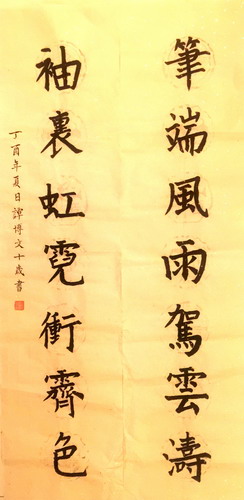 筆端風雨駕雲濤
袖裏虹霓衝霽色
丁酉年夏日譚博文十歲書